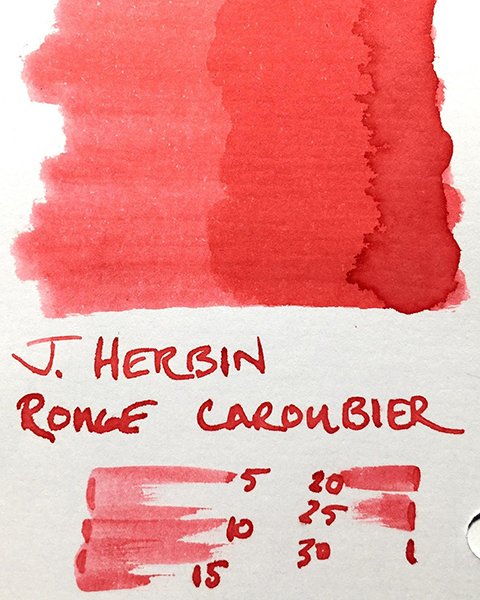 J. HERBIN
ROUGE CAROUBIER
5 20
10 25
15 30